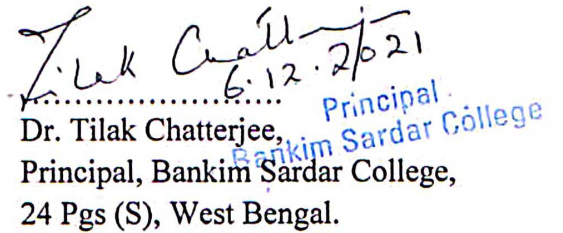 Tilak Chatterjee
6.12.2021
....................
Principal
Bankim Sardar College
Dr. Tilak Chatterjee,
Principal, Bankim Sardar College,
24 Pgs (S), West Bengal.